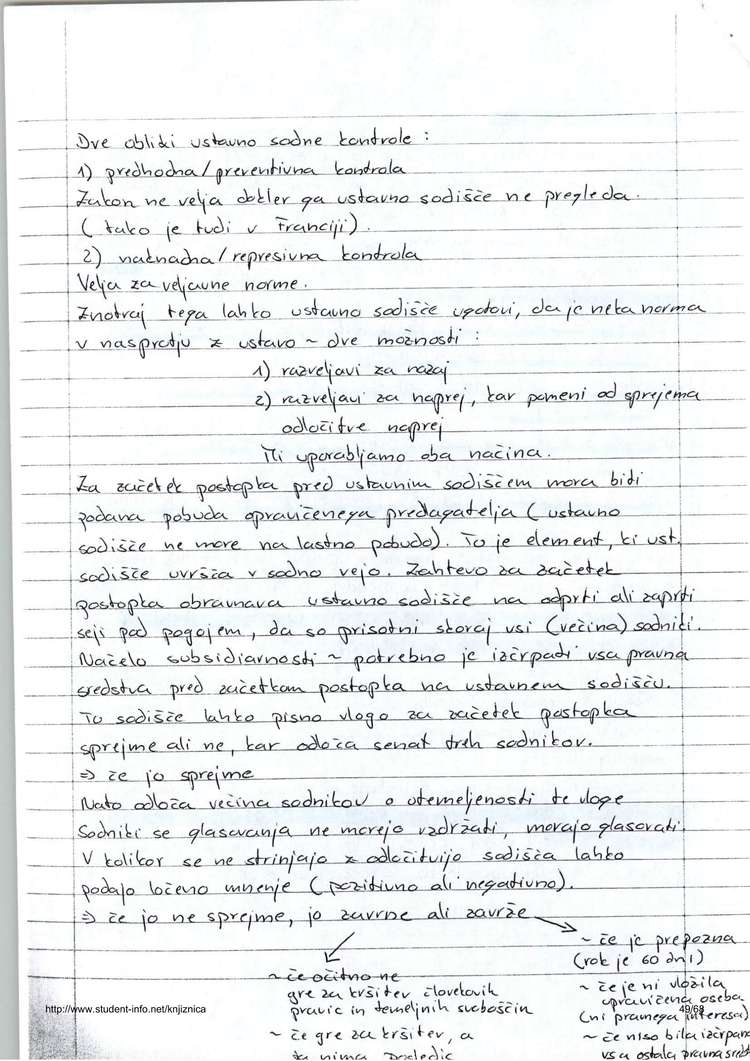 Dve obliki ustavno sodne kontrole :
1) predhodna/preventivna kontrola
Zakon ne velja dokler ga ustavno sodišče ne pregleda.
( tako je tudi v Franciji).
2) naknadna/represivna kontrola
Velja za veljavne norme.
Znotraj tega lahko ustavno sodišče ugotovi, da je neka norma
v nasprotju z ustavo ~ dve možnosti :
1) razveljavi za nazaj
2) razveljavi za naprej, kar pomeni od sprejema
odločitve naprej
Mi uporabljamo oba načina.
Za začetek postopka pred ustavnim sodiščem mora biti
podana pobuda opravičenega predlagatelja ( ustavno
sodišče ne more na lastno pobudo). To je element, ki ust.
sodišče uvršča v sodno vejo. Zahtevo za začetek
postopka obravnava ustavno sodišče na odprti ali zaprti
seji pod pogojem, da so prisotni skoraj vsi (večina) sodniki.
Načelo subsidiarnosti ~ potrebno je izčrpati vsa pravna
sredstva pred začetkom postopka na ustavnem sodišču.
To sodišče lahko pisno vlogo za začetek postopka
sprejme ali ne, kar odloča senat treh sodnikov.
⇒ če jo sprejme
Nato odloča večina sodnikov o utemeljenosti te vloge
Sodniki se glasovanja ne morejo vzdržati, morajo glasovati.
V kolikor se ne strinjajo z odločitvijo sodišča lahko
podajo ločeno mnenje (pozitivno ali negativno).
⇒ če jo ne sprejme, jo zavrne ali zavrže
~ če očitno ne
gre za kršitev človekovih
pravic in temeljnih svoboščin
~ če gre za kršitev, a
ta nima posledic
~ če je prepozna
(rok je 60 dni)
~ če je ni vložila
upravičena oseba
(ni pravnega interesa)
~ če niso bila izčrpana
vsa ostala pravna sred
http://www.student-info.net/knjiznica
49/68